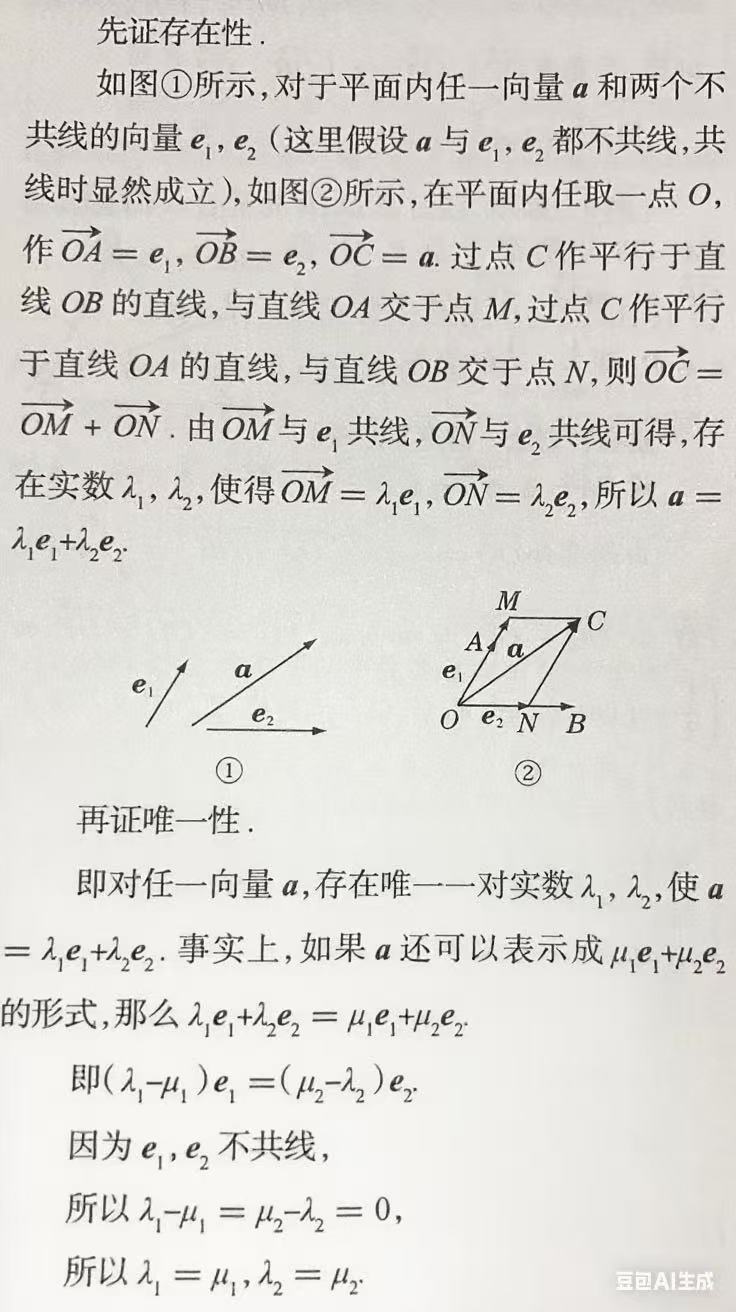 先证存在性.
如图①所示,对于平面内任一向量 a 和两个不
共线的向量 e₁, e₂ (这里假设 a 与 e₁, e₂ 都不共线,共
线时显然成立),如图②所示,在平面内任取一点 O,
作 \overrightarrow{OA} = e₁, \overrightarrow{OB} = e₂, \overrightarrow{OC} = a. 过点 C 作平行于直
线 OB 的直线,与直线 OA 交于点 M,过点 C 作平行
于直线 OA 的直线,与直线 OB 交于点 N,则 \overrightarrow{OC} =
\overrightarrow{OM} + \overrightarrow{ON}. 由 \overrightarrow{OM} 与 e₁ 共线, \overrightarrow{ON} 与 e₂ 共线可得,存
在实数 λ₁, λ₂,使得 \overrightarrow{OM} = λ₁e₁, \overrightarrow{ON} = λ₂e₂,所以 a =
λ₁e₁+λ₂e₂.
e₁ a e₂
①
M C
A a
e₁
O e₂ N B
②
再证唯一性.
即对任一向量 a,存在唯一一对实数 λ₁, λ₂,使 a
= λ₁e₁+λ₂e₂. 事实上,如果 a 还可以表示成 μ₁e₁+μ₂e₂
的形式,那么 λ₁e₁+λ₂e₂ = μ₁e₁+μ₂e₂.
即(λ₁-μ₁)e₁ =(μ₂-λ₂)e₂.
因为 e₁, e₂ 不共线,
所以 λ₁-μ₁ = μ₂-λ₂ = 0,
所以 λ₁ = μ₁, λ₂ = μ₂.
豆包AI生成